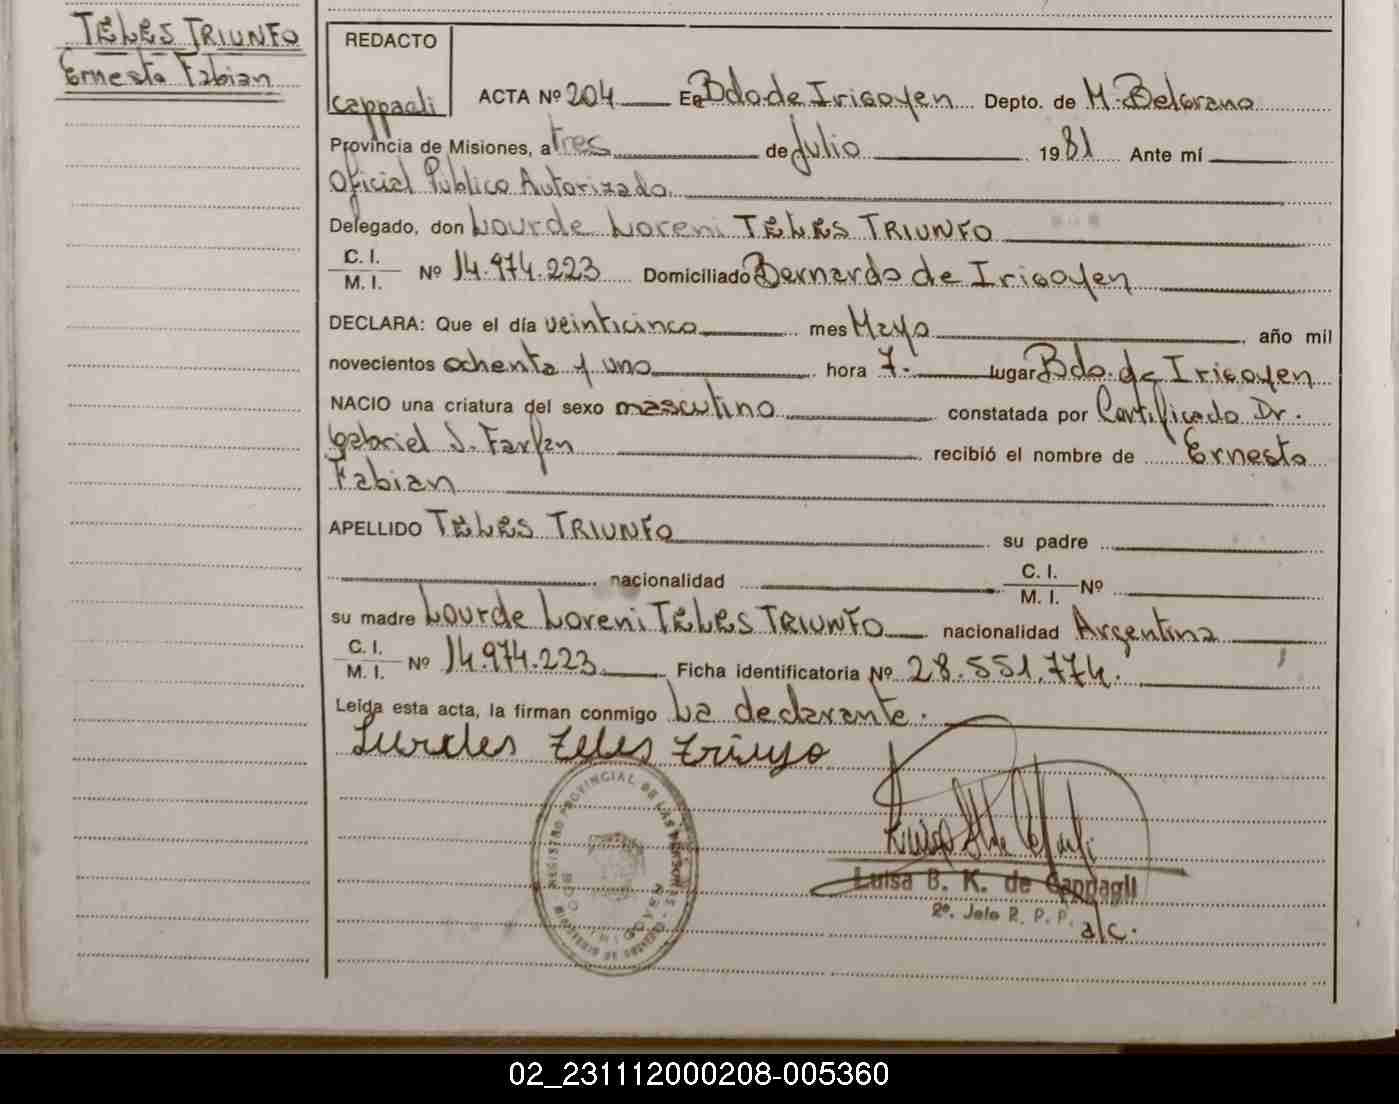 TELES TRIUNFO
Ernesto Fabian
REDACTO
Cappagli
ACTA Nº 204 En Bdo de Irigoyen Depto. de M. Belgrano
Provincia de Misiones, a tres de Julio 1981 Ante mí
Oficial Publico Autorizado
Delegado, don Lourde Loreni TELES TRIUNFO
C. I.
M. I. Nº 14.974.223 Domiciliado Bernardo de Irigoyen
DECLARA: Que el día veinticinco mes Mayo año mil
novecientos ochenta y uno hora 7. lugar Bdo. de Irigoyen
NACIO una criatura del sexo masculino constatada por Certificado Dr.
Gabriel S. Farfan recibió el nombre de Ernesto
Fabian
APELLIDO TELES TRIUNFO su padre
nacionalidad C. I.
M. I. Nº
su madre Lourde Loreni TELES TRIUNFO nacionalidad Argentina
C. I.
M. I. Nº 14.974.223 Ficha identificatoria Nº 28.551.774.
Leída esta acta, la firman conmigo La declarante.
Lurdes Teles Triunfo
REGISTRO PROVINCIAL DE LAS PERSONAS
MINISTERIO DE GOBIERNO
BDO. IRIGOYEN
Luisa B. K. de Cappagli
2º. Jefe R. P. P.
a/c.
02_231112000208-005360